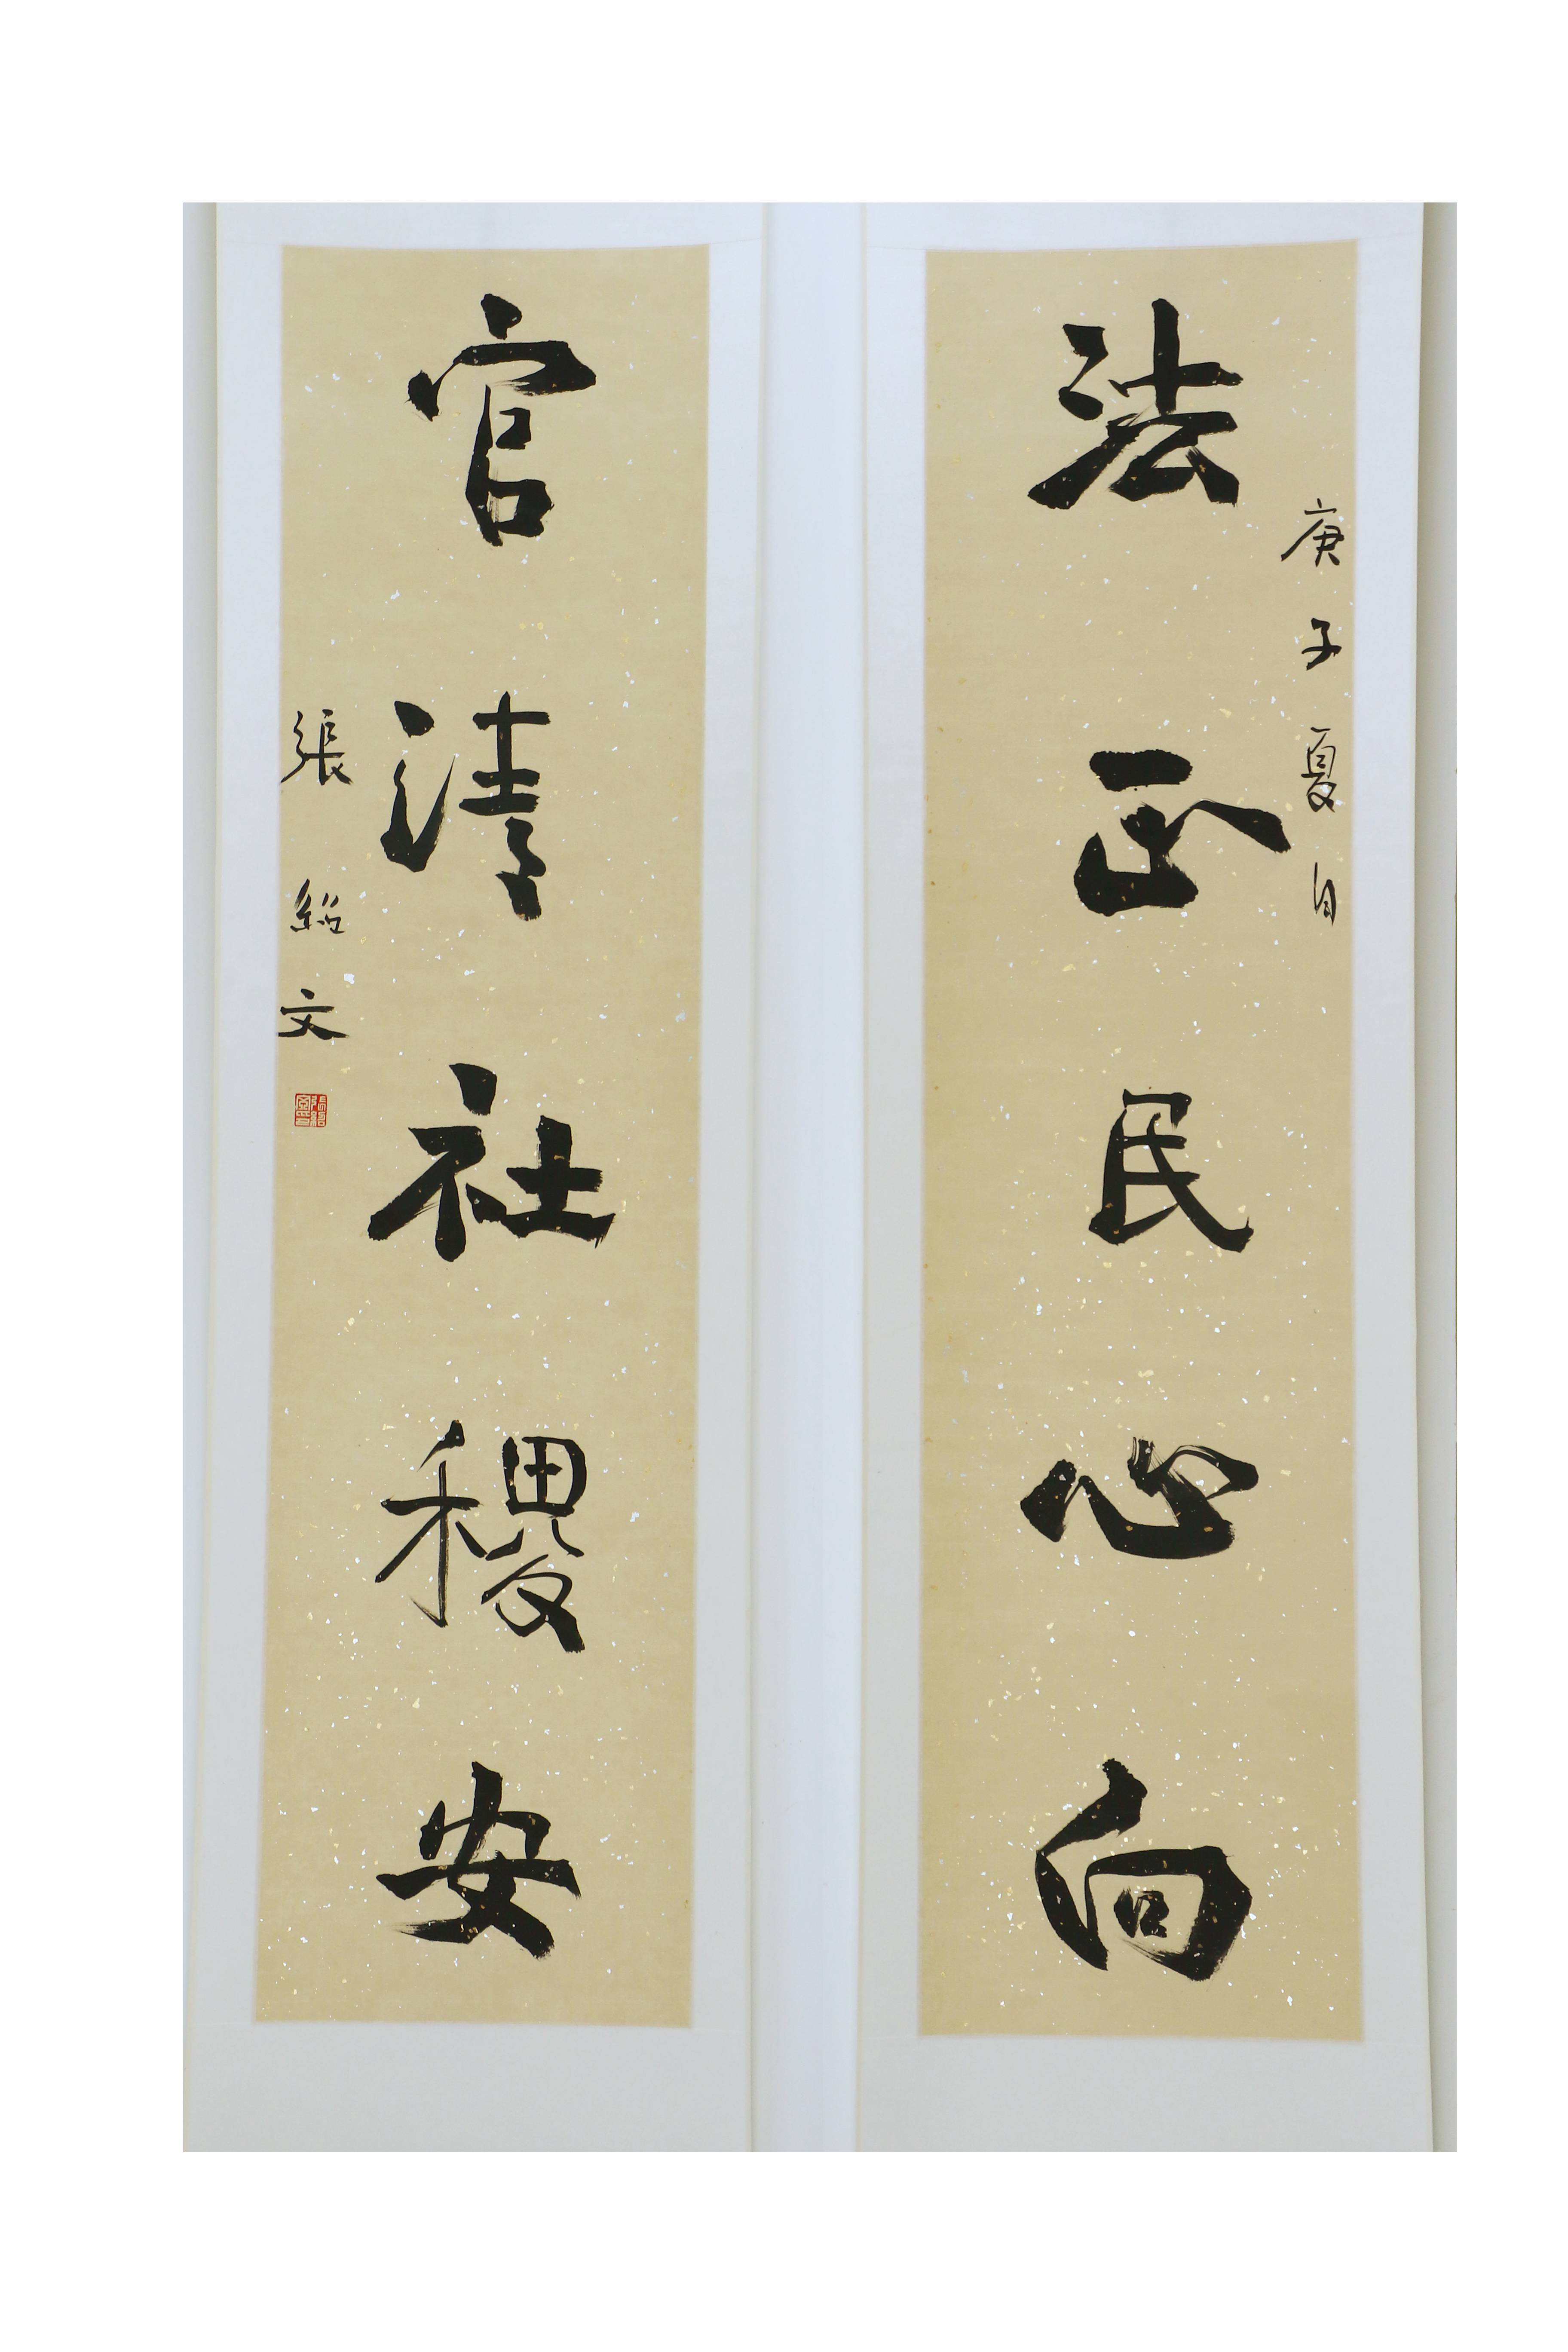 庚子夏月
法正民心向
官清社稷安
張紹文